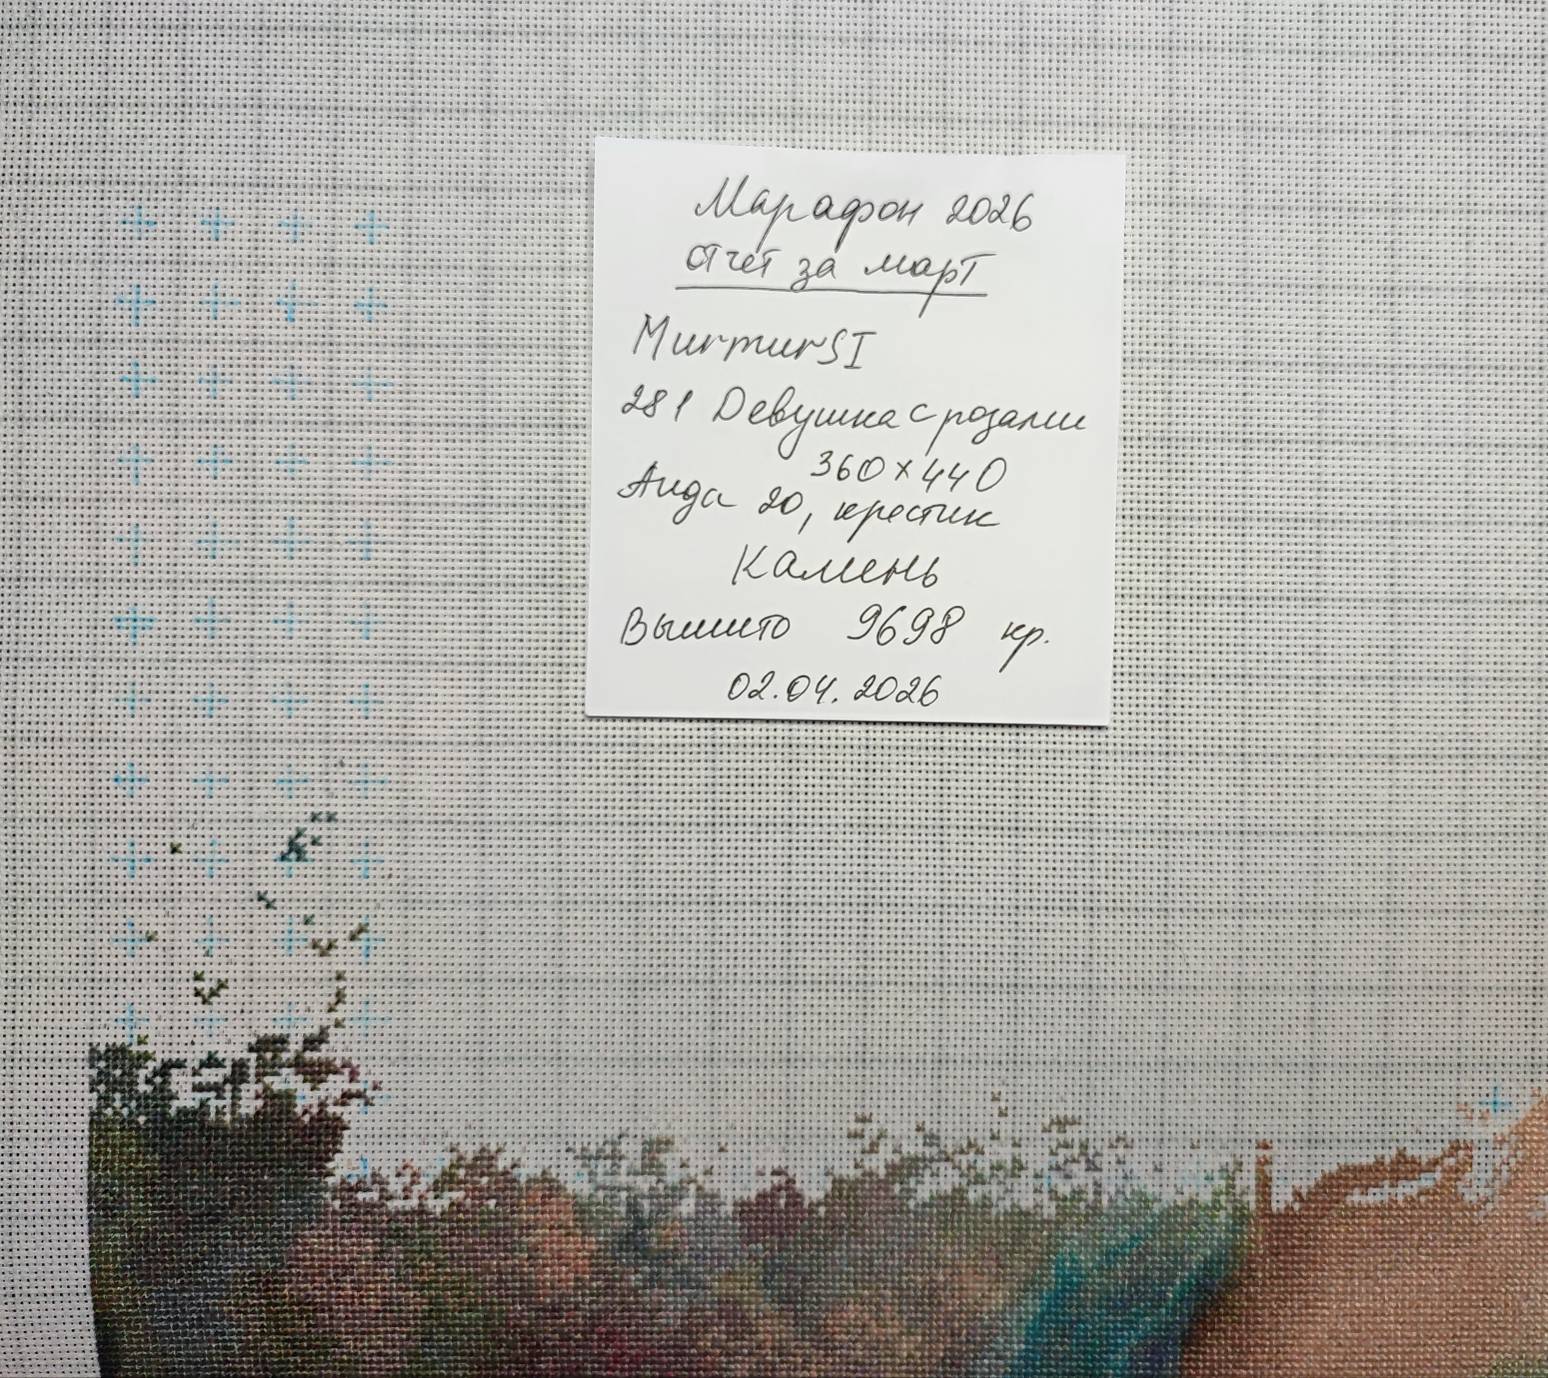 Марафон 2026
отчет за март
MurmurSI
281 Девушка с розами
360×440
Аида 20, крестик
Камень
Вышито 9698 кр.
02.04.2026